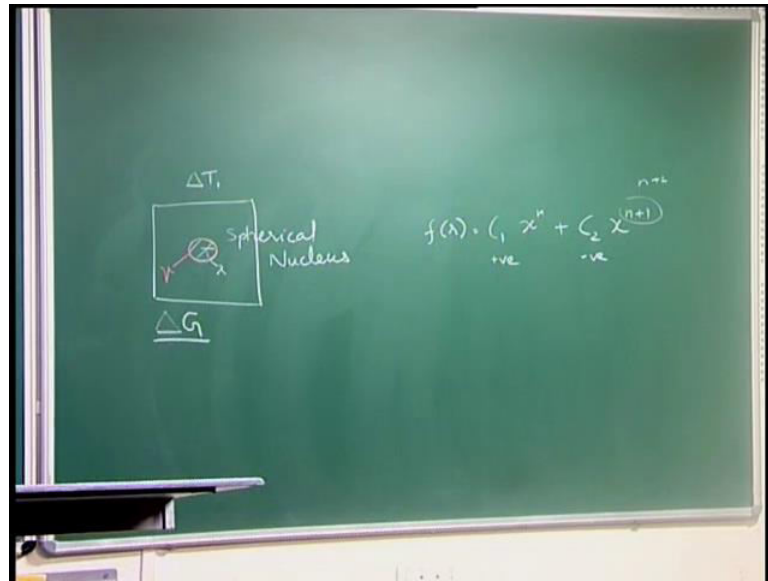 ΔT₁
Spherical
Nucleus
γ
r
ΔG
n+2
f(x) = C₁ xⁿ + C₂ x⁽ⁿ⁺¹⁾
+ve -ve